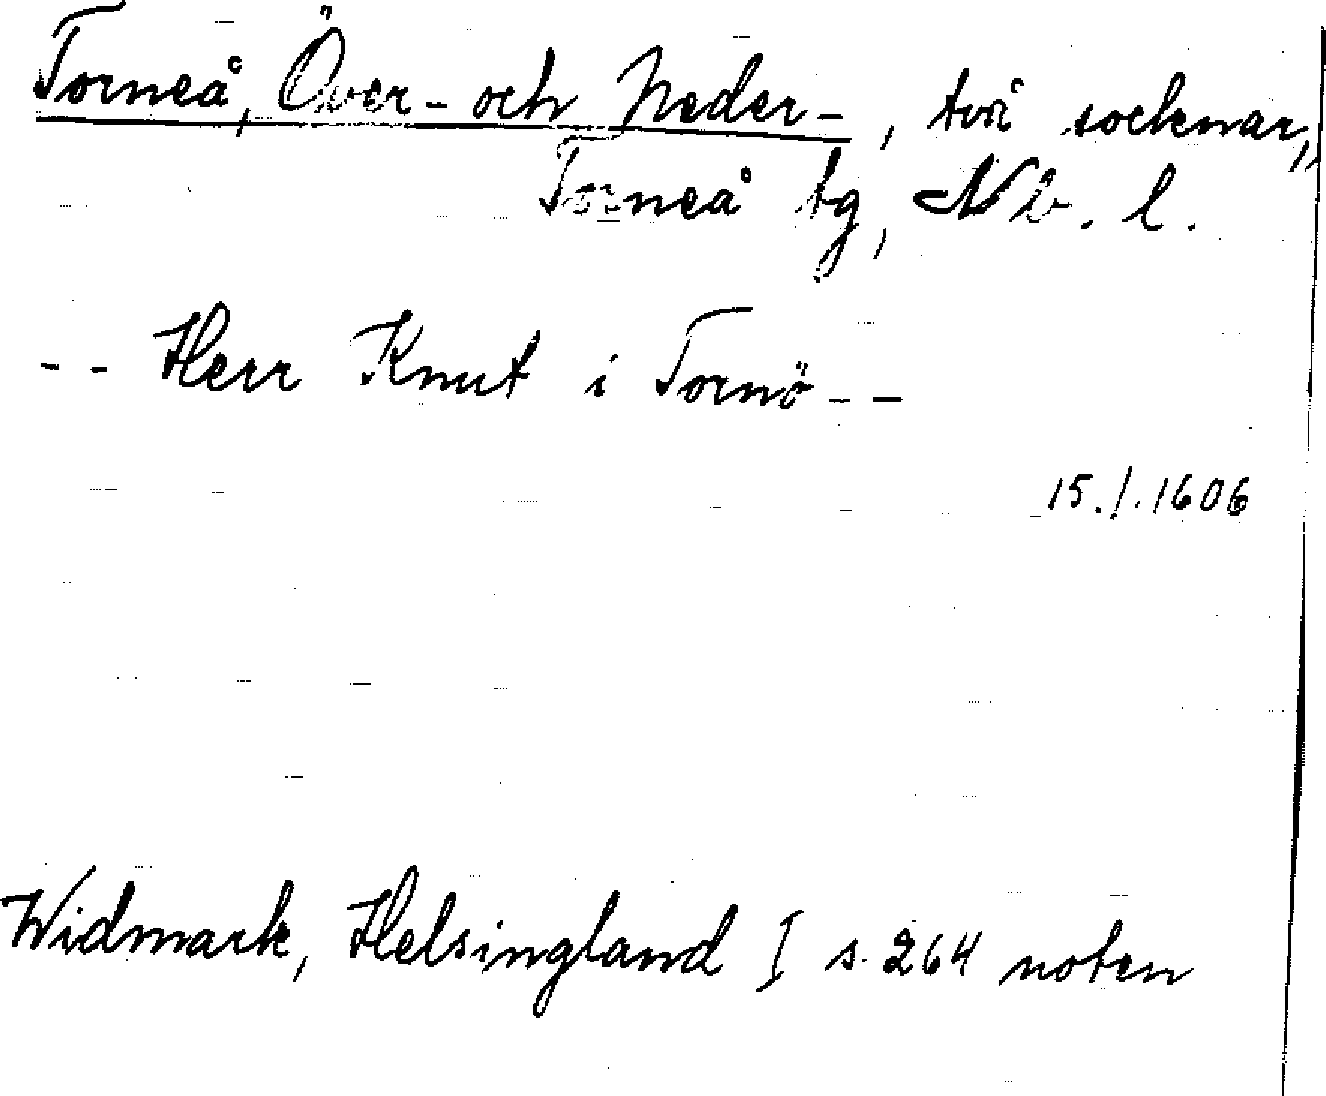 Torneå, Över- och Neder-, två socknar,
Torneå tg, Nb. l.
-- Herr Knut i Tornö --
15.1.1606
Widmark, Helsingland I s. 264 noten